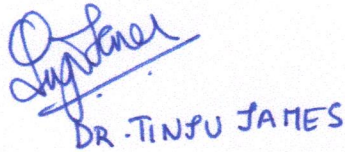 DR. TINJU JAMES